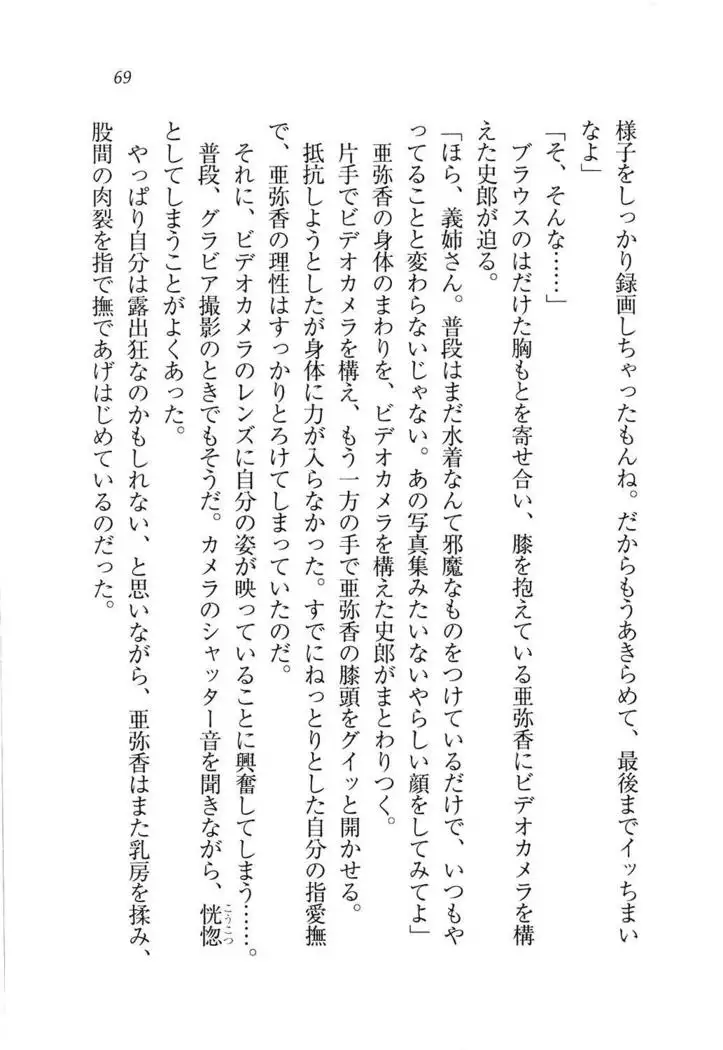 69
様子をしっかり録画しちゃったもんね。だからもうあきらめて、最後までイッちまい
なよ」
「そ、そんな……」
ブラウスのはだけた胸もとを寄せ合い、膝を抱えている亜弥香にビデオカメラを構
えた史郎が迫る。
「ほら、義姉さん。普段はまだ水着なんて邪魔なものをつけているだけで、いつもや
ってることと変わらないじゃない。あの写真集みたいないやらしい顔をしてみてよ」
亜弥香の身体のまわりを、ビデオカメラを構えた史郎がまとわりつく。
片手でビデオカメラを構え、もう一方の手で亜弥香の膝頭をグイッと開かせる。
抵抗しようとしたが身体に力が入らなかった。すでにねっとりとした自分の指愛撫
で、亜弥香の理性はすっかりとろけてしまっていたのだ。
それに、ビデオカメラのレンズに自分の姿が映っていることに興奮してしまう……。
普段、グラビア撮影のときでもそうだ。カメラのシャッター音を聞きながら、恍惚
こうこつ
としてしまうことがよくあった。
やっぱり自分は露出狂なのかもしれない、と思いながら、亜弥香はまた乳房を揉み、
股間の肉裂を指で撫であげはじめているのだった。